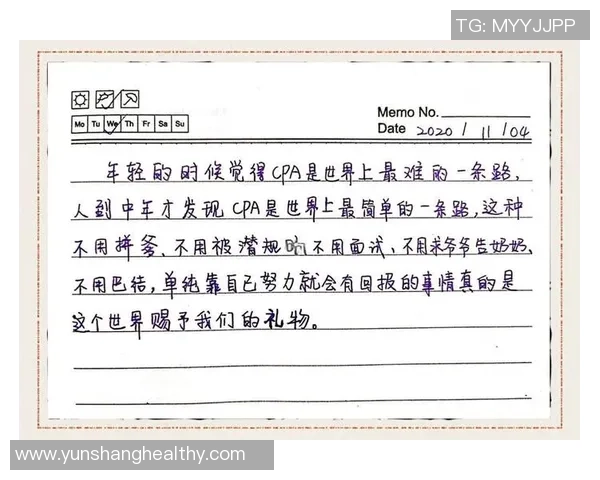 TG: MYYJJPP
Memo No.
Mo Tu We Th Fr Sa Su
Date 2020/11/04
年轻的时候觉得CPA是世界上最难的一条路，
人到中年才发现CPA是世界上最简单的一条路，这种
不用拼爹、不用被潜规 不用面试、不用求爷爷告奶奶、
不用巴结，单纯靠自己努力就会有回报的事情真的是
这个世界赐予我们的礼物。
www.yunshanghealthy.com